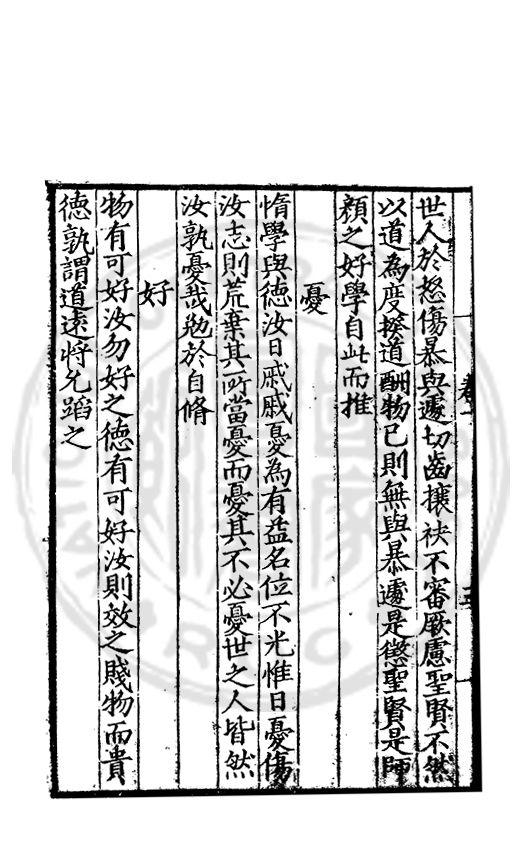 卷一
世人於怒傷暴與遽切齒攘袂不審厥慮聖賢不然
以道為度揆道酬物已則無與暴遽是懲聖賢是師
顏之好學自此而推
憂
惰學與德汝日戚戚憂為有益名位不光惟日憂傷
汝志則荒棄其所當憂而憂其不必憂世之人皆然
汝孰憂哉勉於自脩
好
物有可好汝勿好之德有可好汝則效之賤物而貴
德孰謂道遠將允蹈之